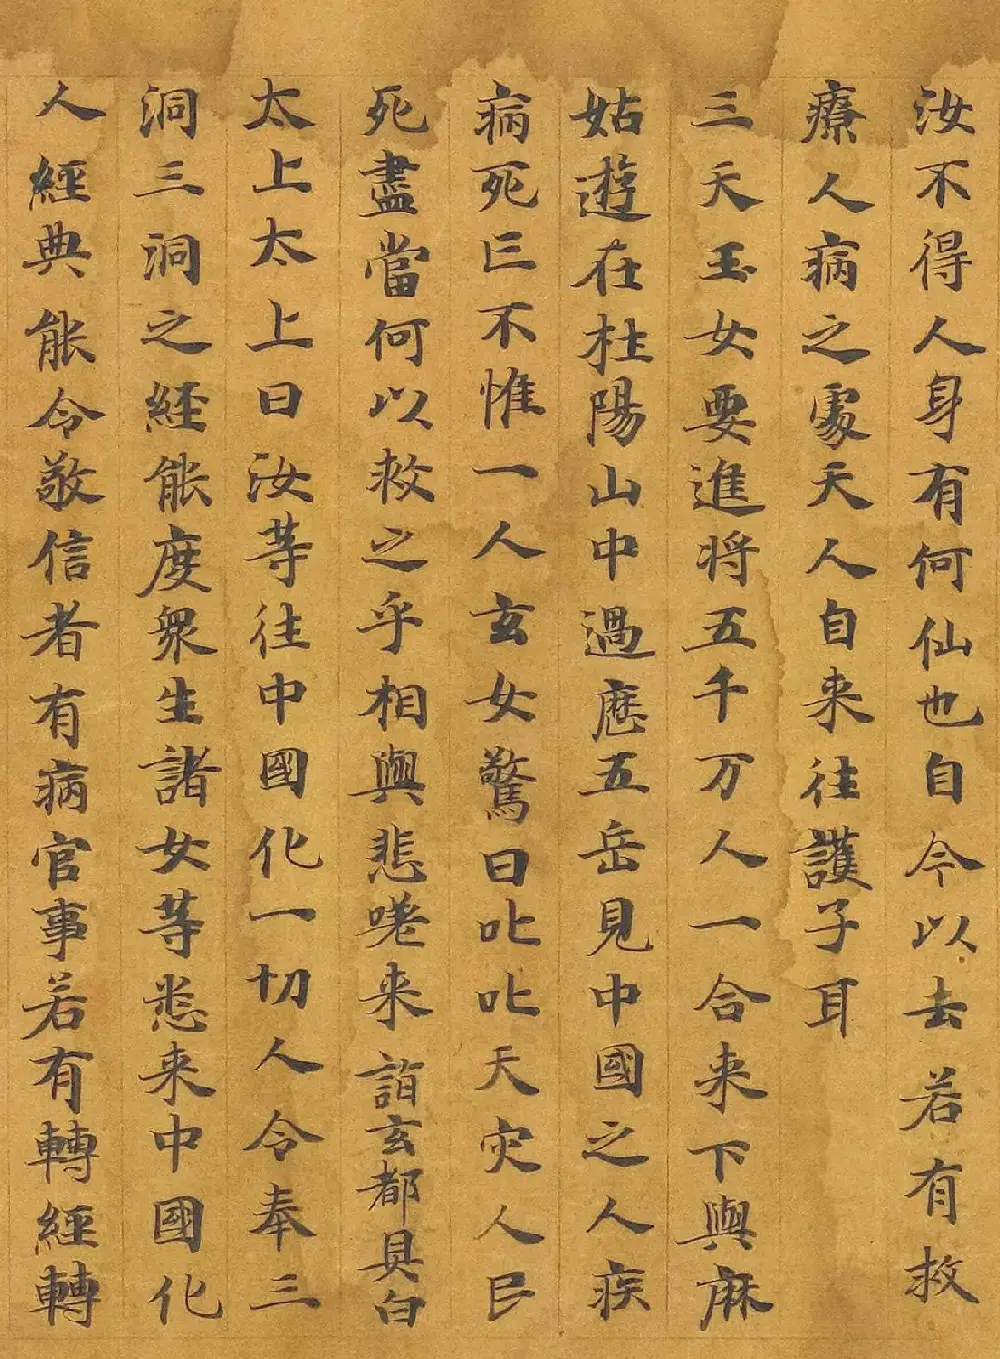 汝不得人身有何仙也自今以去若有救
療人病之處天人自来往護子耳
三天玉女要進将五千万人一合来下與麻
姑遊在杜陽山中過歷五岳見中國之人疾
病死亡不惟一人玄女驚曰叱叱天灾人民
死盡當何以救之乎相與悲嘆来詣玄都具白
太上太上曰汝等往中國化一切人令奉三
洞三洞之經能度衆生諸女等悉来中國化
人經典能令敬信者有病官事若有轉經轉